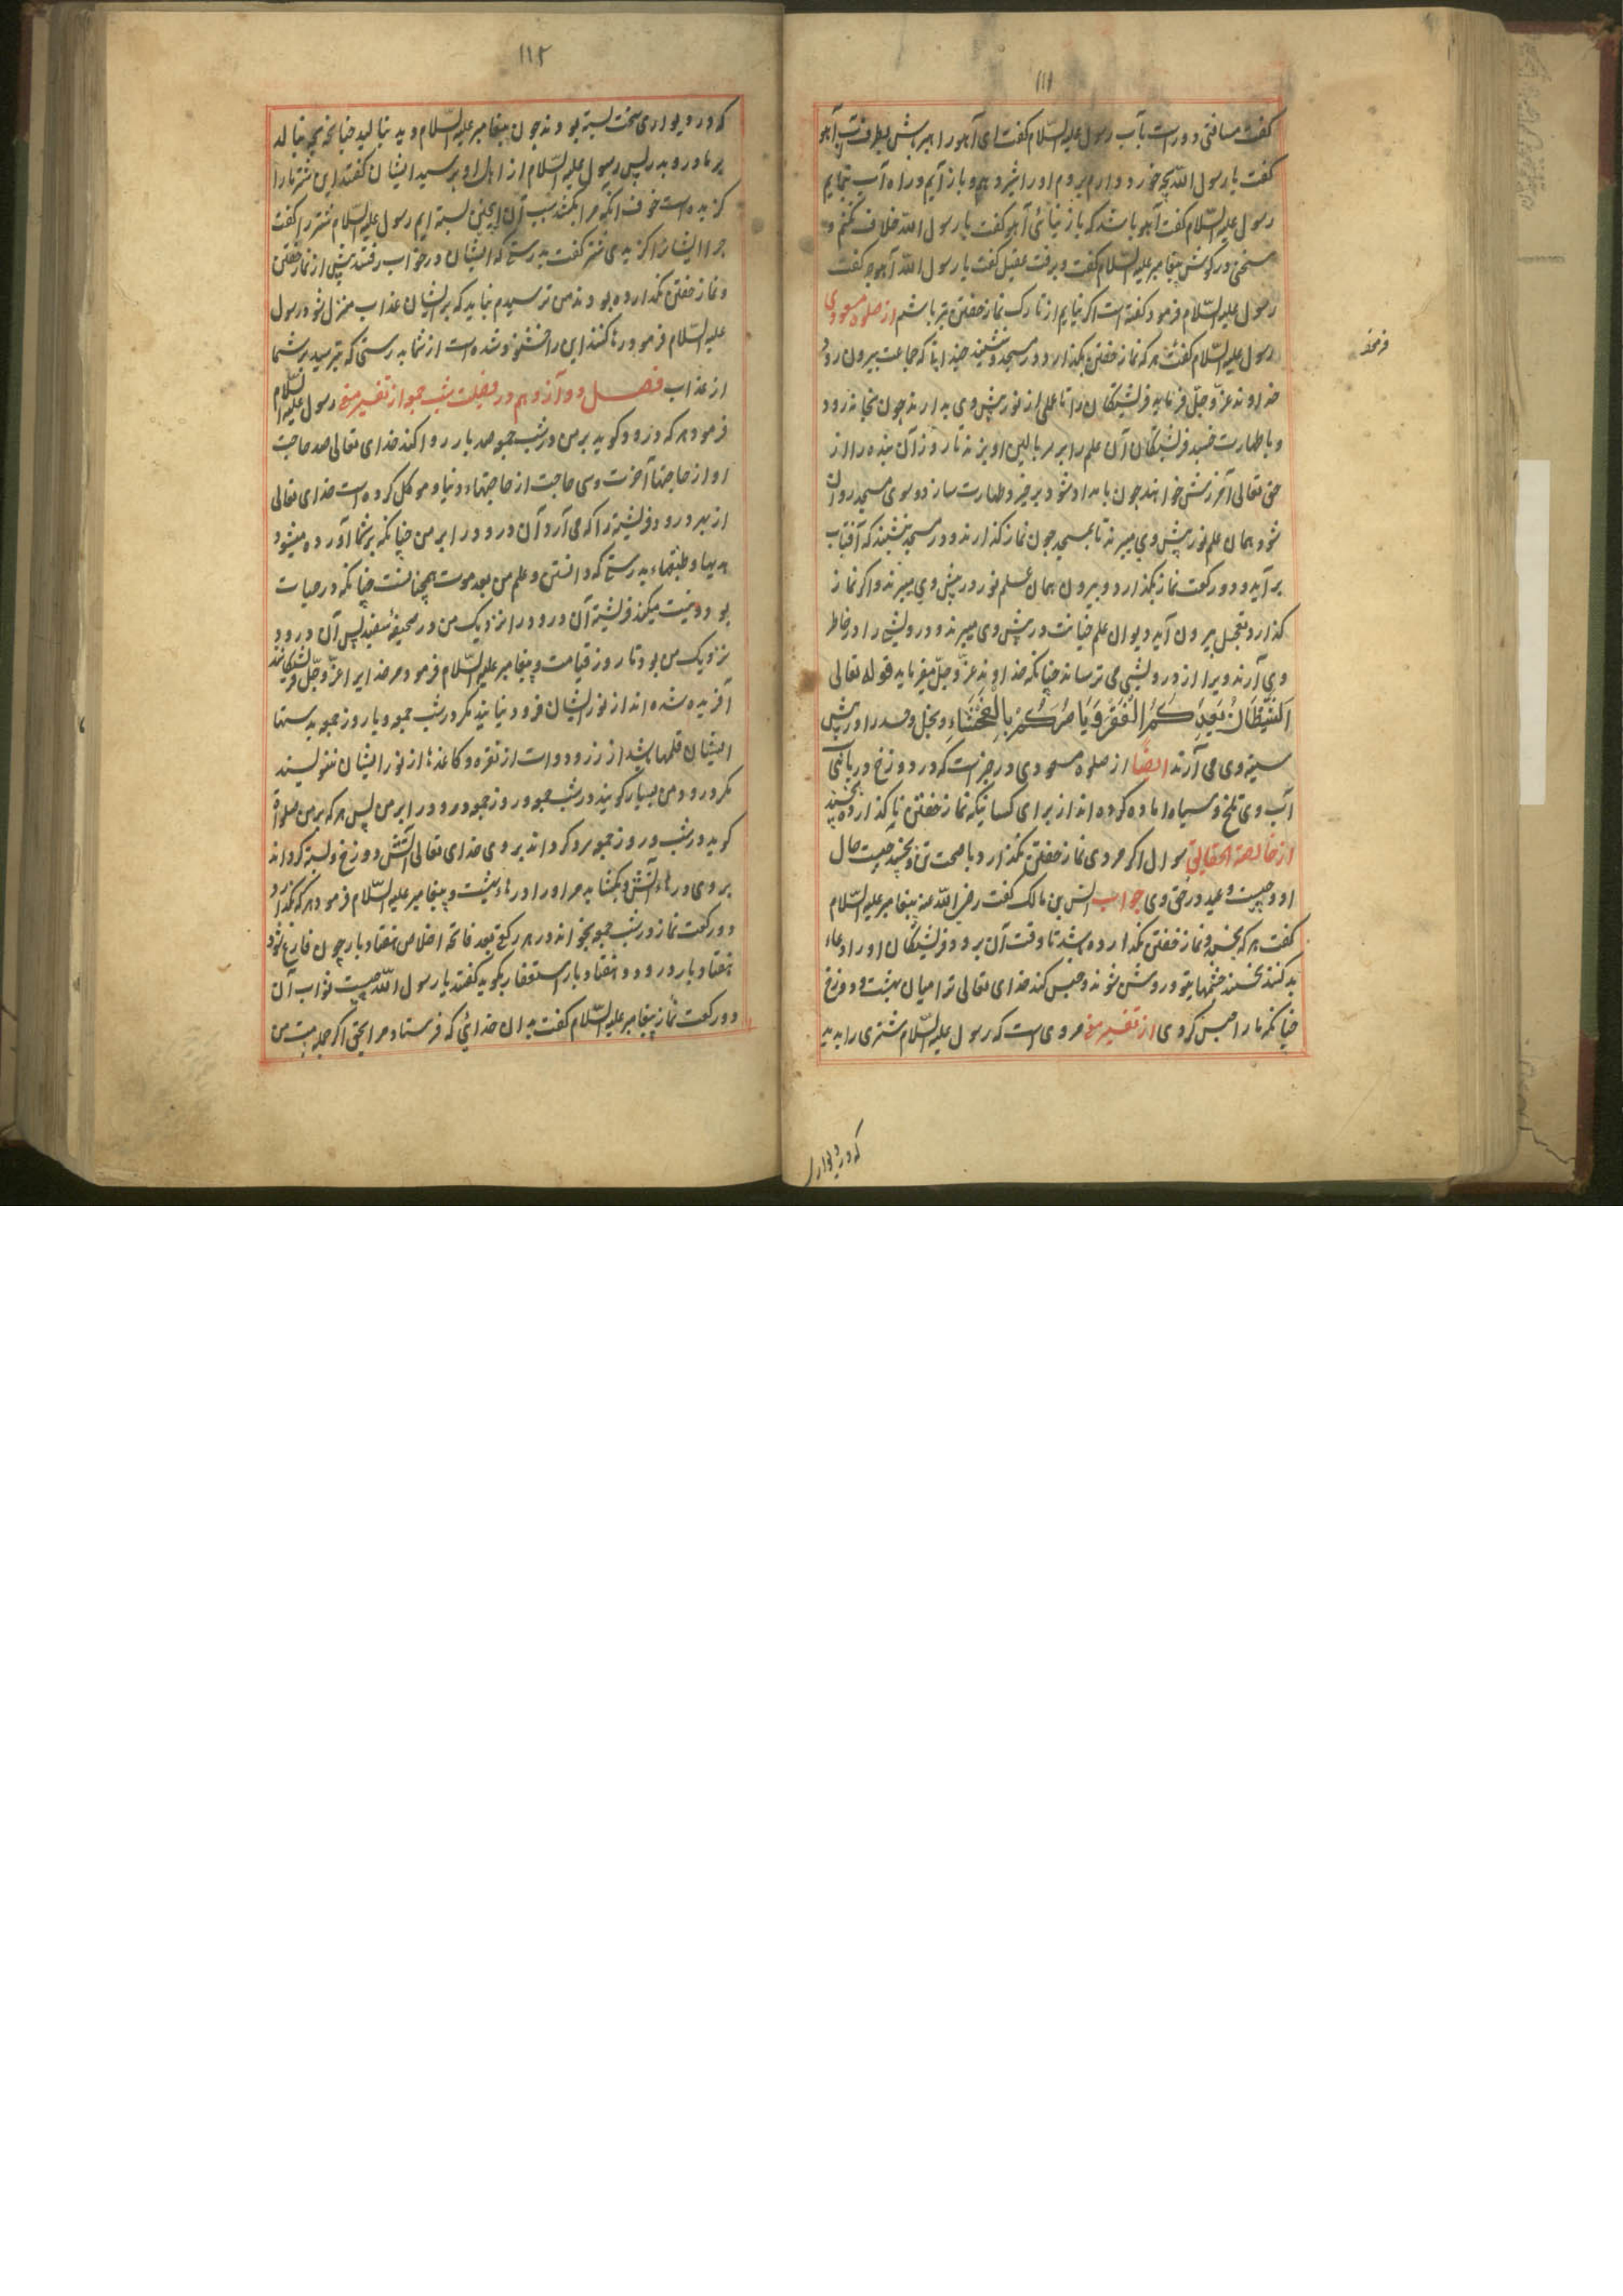 ۱۱۱
گفت مسافتی دورست بآب رسول علیه السّلام گفت ای آهو راهبر باش بطرف آب آهو
گفت یا رسول الله بچه خورد دارم بروم اورا شیر دهم و باز آیم و راه آب بنمایم
رسول علیه السّلام گفت آهو باشد که باز نیائی آهو گفت یا رسول الله خلاف نکنم و
سخنی در گوش پیغامبر علیه السّلام گفت و برفت عقیل گفت یا رسول الله آهو چه گفت
رسول علیه السّلام فرمود گفته است اگر نیایم از تارک نماز خفتن بتر باشم از صلوة مسعودی
رسول علیه السّلام گفت هر که نماز خفتن بگذارد و در مسجد بنشیند چندانکه جماعت بیرون رود
خداوند عزّ و جلّ فرماید فرشتگان را تا علمی از نور پیش وی بدارند چون بخانه رود
و با طهارت خسپد فرشتگان آن علم را بر سر بالین او بزنند تا روز آن بنده را از
حق تعالی آمرزش خواهند چون بامداد شود برخیزد و طهارت سازد و سوی مسجد روان
شود همان علم نور پیش وی میبرند تا بمسجد چون نماز گذارند و در مسجد بنشیند که آفتاب
برآید و دو رکعت نماز بگذارد و بیرون همان علم نور در پیش وی میبرند و اگر نماز
گذارد و تعجیل بیرون آید دیوان علم خیانت در پیش وی میبرند و درویشی را در خاطر
وی آرند و یرا از درویشی می ترسانند چنانکه خداوند عزّ و جلّ میفرماید قوله تعالی
اَلشَّيْطَانُ يَعِدُكُمُ الْفَقْرَ وَيَأْمُرُكُمْ بِالْفَحْشَاءِ و بخل و حسد را در پیش
سینه وی می آرند ایضاً از صلوة مسعودی در خبرست که در دوزخ دریائی
آب وی تلخ و سیاه اماده کرده اند از برای کسانیکه نماز خفتن ناگذارده بخسپند
از خالصة الحقایق سوال اگر مردی نماز خفتن نگذارد با صحت تن و بخسپد چیست حال
او و چیست وعید در حق وی جواب انس بن مالک گفت رضی الله عنه پیغامبر علیه السّلام
گفت هر که بخسپد و نماز خفتن نگذارده باشد تا وقت آن برود فرشتگان اورا دعاء
بد کنند نخسپند چشمهای تو و روشن شوند و حبس کند خدای تعالی ترا میان بهشت و دوزخ
چنانکه مارا حبس کردی از تفسیر منیر مروی است که رسول علیه السّلام شتری را بدید
که در دیواری
۱۱۲
که در دیواری سخت بسته بودند چون پیغامبر علیه السّلام دید بنالید چنانچه بچه بنالد
بر مادر و پدر پس رسول علیه السّلام از اهل او پرسید ایشان گفتند این شتر مارا
گزیده است خوف آنکه مرا بکشد سبب آن اینچنین بسته ایم رسول علیه السّلام شتر را گفت
چرا ایشانرا گزیدی شتر گفت بدرستی که ایشان در خواب رفتند پیش از نماز خفتن
و نماز خفتن نگذارده بودند من ترسیدم نباید که بر ایشان عذاب منزل شود رسول
علیه السّلام فرمود رها کنند این را خشنود شده است از شما بدرستی که بترسید بر شما
از عذاب فصل دوازدهم در فضیلت شب جمعه از تفسیر منیر رسول علیه السّلام
فرمود هر که درود گوید بر من در شب جمعه صد بار روا کند خدای تعالی صد حاجت
او از حاجتهاء آخرت و سی حاجت از حاجتهاء دنیا و موکل کرده است خدای تعالی
از بهر درود فرشته را که می آرد آن درود را بر من چنانکه بر شما آورده میشود
هدیها و طبقهاء بدرستی که دانستن و علم من بعد موت همچنانست چنانکه در حیات
بود و ثبت میکند فرشته آن درود را نزدیک من در صحیفهٔ سفید پس آن درود
نزدیک من بود تا روز قیامت و پیغامبر علیه السّلام فرمود مر خدایرا عزّ و جلّ فرشتگانند
آفریده شده اند از نور ایشان فرود نیایند مگر در شب جمعه و یا روز جمعه بدستها
ایشان قلمها باشد از زر و دوات از نقره و کاغذها از نور ایشان ننویسند
مگر درود من بسیار گویند در شب جمعه و روز جمعه درود را بر من پس هر که بر من صلوة
گوید در شب و روز جمعه سرد گرداند بروی خدای تعالی آتش دوزخ و بسته گرداند
بروی درهاء آتش و بگشاید مر اورا درهاء بهشت و پیغامبر علیه السّلام فرمود هر که بگذارد
دو رکعت نماز در شب جمعه بخواند در هر رکعتی بعد فاتحه اخلاص هفتاد بار چون فارغ شود
هفتاد بار درود و هفتاد بار استغفار بگوید گفتند یا رسول الله چیست ثواب آن
دو رکعت نماز پیغامبر علیه السّلام گفت بدان خدائی که فرستاد مرا بحق اگر جمله امت من